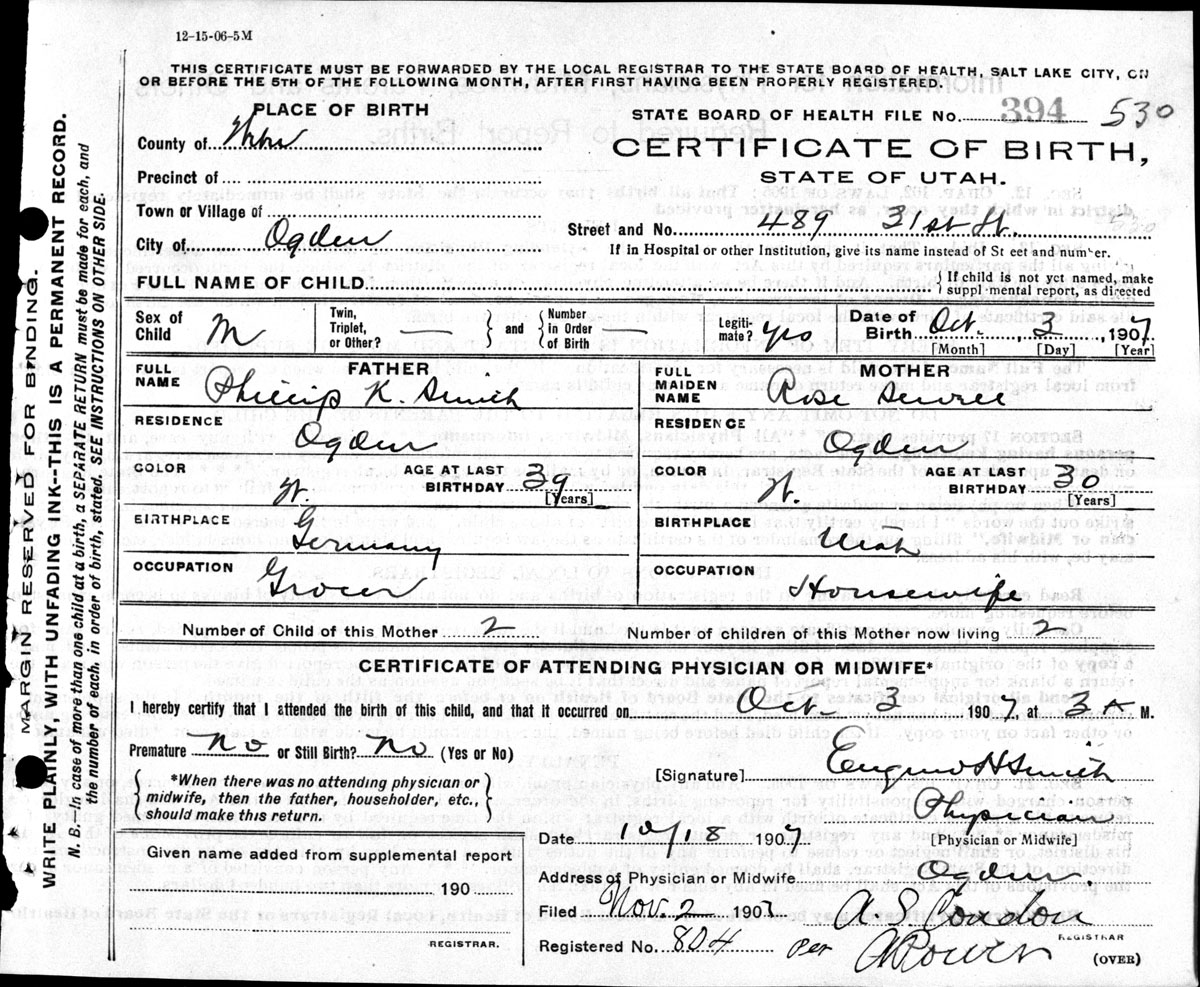 12-15-06-5M
THIS CERTIFICATE MUST BE FORWARDED BY THE LOCAL REGISTRAR TO THE STATE BOARD OF HEALTH, SALT LAKE CITY, ON
OR BEFORE THE 5TH OF THE FOLLOWING MONTH, AFTER FIRST HAVING BEEN PROPERLY REGISTERED.
MARGIN RESERVED FOR BINDING.
WRITE PLAINLY WITH UNFADING INK--THIS IS A PERMANENT RECORD.
N. B. In case of more than one child at a birth, a SEPARATE RETURN must be made for each, and
the number of each, in order of birth, stated. SEE INSTRUCTIONS ON OTHER SIDE.
PLACE OF BIRTH
County of
Precinct of
Town or Village of
City of Ogden
STATE BOARD OF HEALTH FILE No. 394 530
CERTIFICATE OF BIRTH,
STATE OF UTAH.
Street and No. 489 31st St.
If in Hospital or other Institution, give its name instead of St eet and number.
FULL NAME OF CHILD
If child is not yet named, make
suppl mental report, as directed
Sex of Child M
Twin, Triplet, or Other? — and Number in Order of Birth —
Legitimate? yes
Date of Birth Oct. 3 1907
[Month] [Day] [Year]
FATHER
FULL NAME Phillip K. Smith
RESIDENCE Ogden
COLOR W. AGE AT LAST BIRTHDAY 39 [Years]
BIRTHPLACE Germany
OCCUPATION Grocer
MOTHER
FULL MAIDEN NAME Rose
RESIDENCE Ogden
COLOR W. AGE AT LAST BIRTHDAY 30 [Years]
BIRTHPLACE Utah
OCCUPATION Housewife
Number of Child of this Mother 2
Number of children of this Mother now living 2
CERTIFICATE OF ATTENDING PHYSICIAN OR MIDWIFE*
I hereby certify that I attended the birth of this child, and that it occurred on Oct. 3 1907, at 3 A M.
Premature No or Still Birth? No (Yes or No)
*When there was no attending physician or
midwife, then the father, householder, etc.,
should make this return.
[Signature] Smith
Physician
[Physician or Midwife]
Date 10/18 1907
Given name added from supplemental report
190
REGISTRAR.
Address of Physician or Midwife Ogden
Filed Nov 2 1907 A. S. Condon
REGISTRAR
Registered No. 804 per
(OVER)